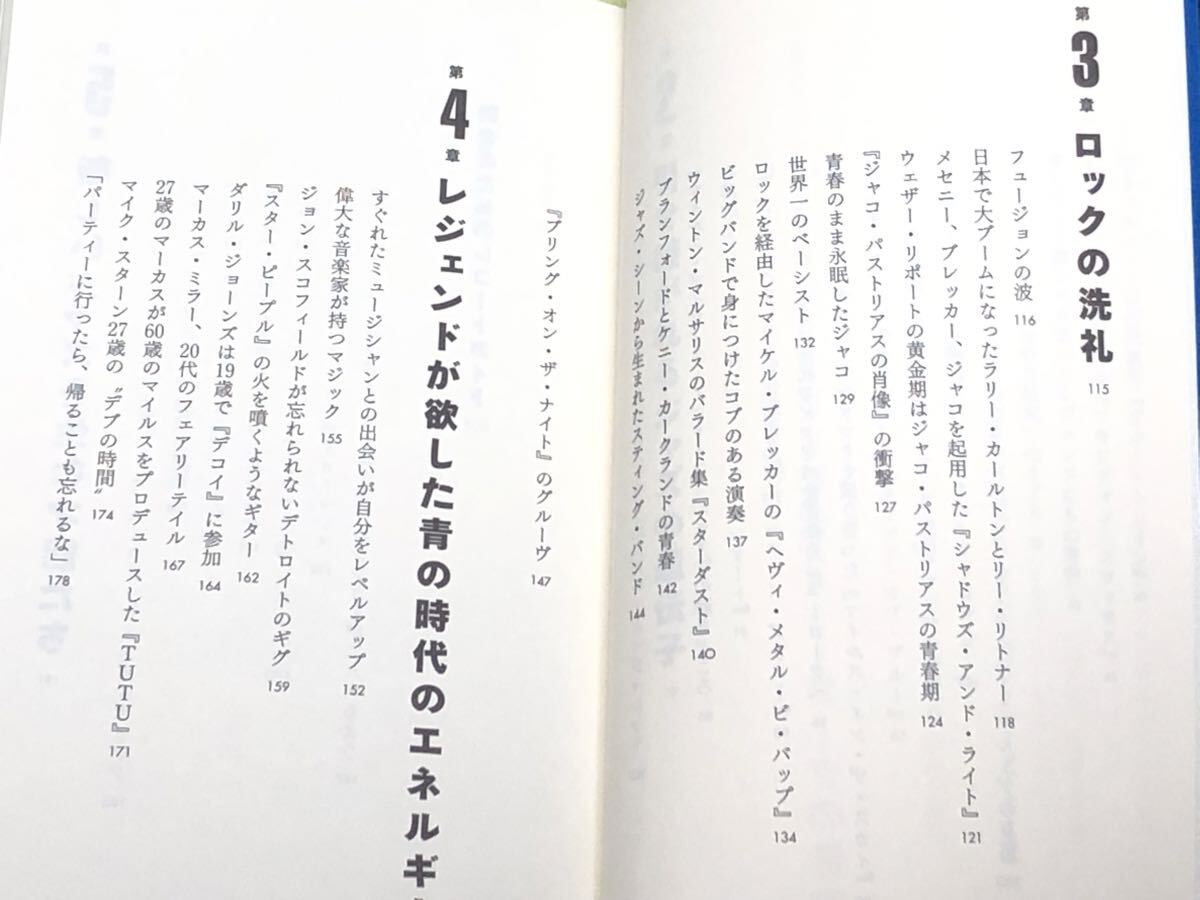 第3章 ロックの洗礼 115
フュージョンの波 116
日本で大ブームになったラリー・カールトンとリー・リトナー 118
メセニー、ブレッカー、ジャコを起用した『シャドウズ・アンド・ライト』 121
ウェザー・リポートの黄金期はジャコ・パストリアスの青春期 124
『ジャコ・パストリアスの肖像』の衝撃 127
青春のまま永眠したジャコ 129
世界一のベーシスト 132
ロックを経由したマイケル・ブレッカーの『ヘヴィ・メタル・ビ・バップ』 134
ビッグバンドで身につけたコブのある演奏 137
ウィントン・マルサリスのバラード集『スターダスト』 140
ブランフォードとケニー・カークランドの青春 142
ジャズ・シーンから生まれたスティング・バンド 144
『ブリング・オン・ザ・ナイト』のグルーヴ 147
第4章 レジェンドが欲した青の時代のエネルギ
すぐれたミュージシャンとの出会いが自分をレベルアップ 152
偉大な音楽家が持つマジック 155
ジョン・スコフィールドが忘れられないデトロイトのギグ 159
『スター・ピープル』の火を噴くようなギター 162
ダリル・ジョーンズは19歳で『デコイ』に参加 164
マーカス・ミラー、20代のフェアリーテイル 167
27歳のマーカスが60歳のマイルスをプロデュースした『TUTU』 171
マイク・スターン27歳の〝デブの時間〟 174
「パーティーに行ったら、帰ることも忘れるな」 178